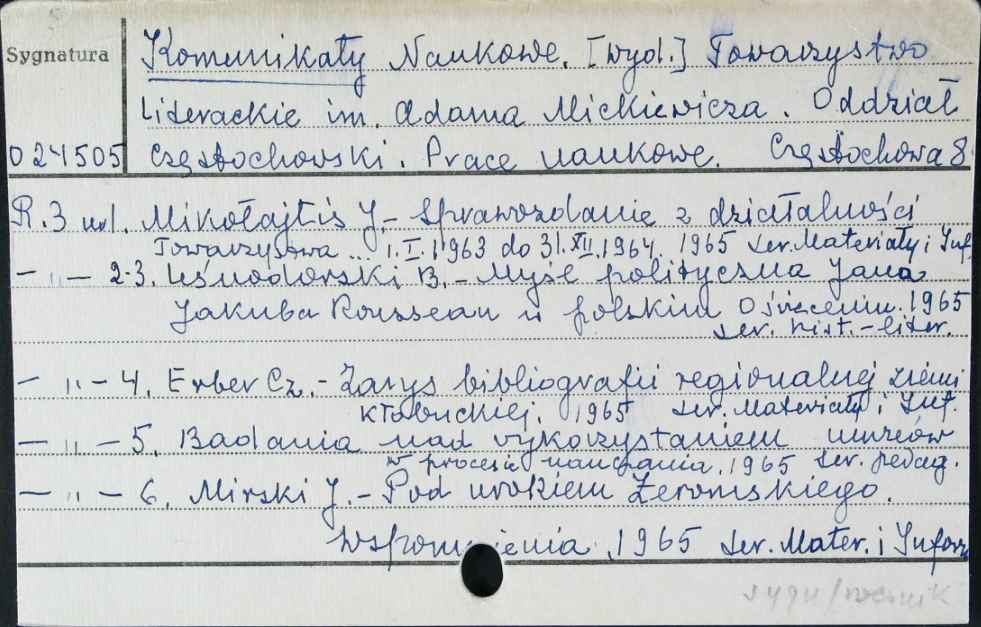 Sygnatura
Komunikaty Naukowe. [wyd.] Towarzystwo
Literackie im. Adama Mickiewicza. Oddział
024505 Częstochowski. Prace naukowe. Częstochowa 8
R.3 nr 1. Mikołajtis J. - Sprawozdanie z działalności
Towarzystwa ... 1.I.1963 do 31.XII.1964. 1965 Ser. Materiały i Inf.
- " - 2-3. Leśnodorski B. - Myśl polityczna Jana
Jakuba Rousseau w polskim Oświeceniu. 1965
Ser. hist.-liter.
- " - 4. Erber Cz. - Zarys bibliografii regionalnej ziemi
kłobuckiej. 1965 Ser. Materiały i Inf.
- " - 5. Badania nad wykorzystaniem muzeów
w procesie nauczania. 1965 Ser. pedag.
- " - 6. Mirski J. - Pod urokiem Żeromskiego.
Wspomnienia. 1965 Ser. Mater. i Inform
sygn/rocznik